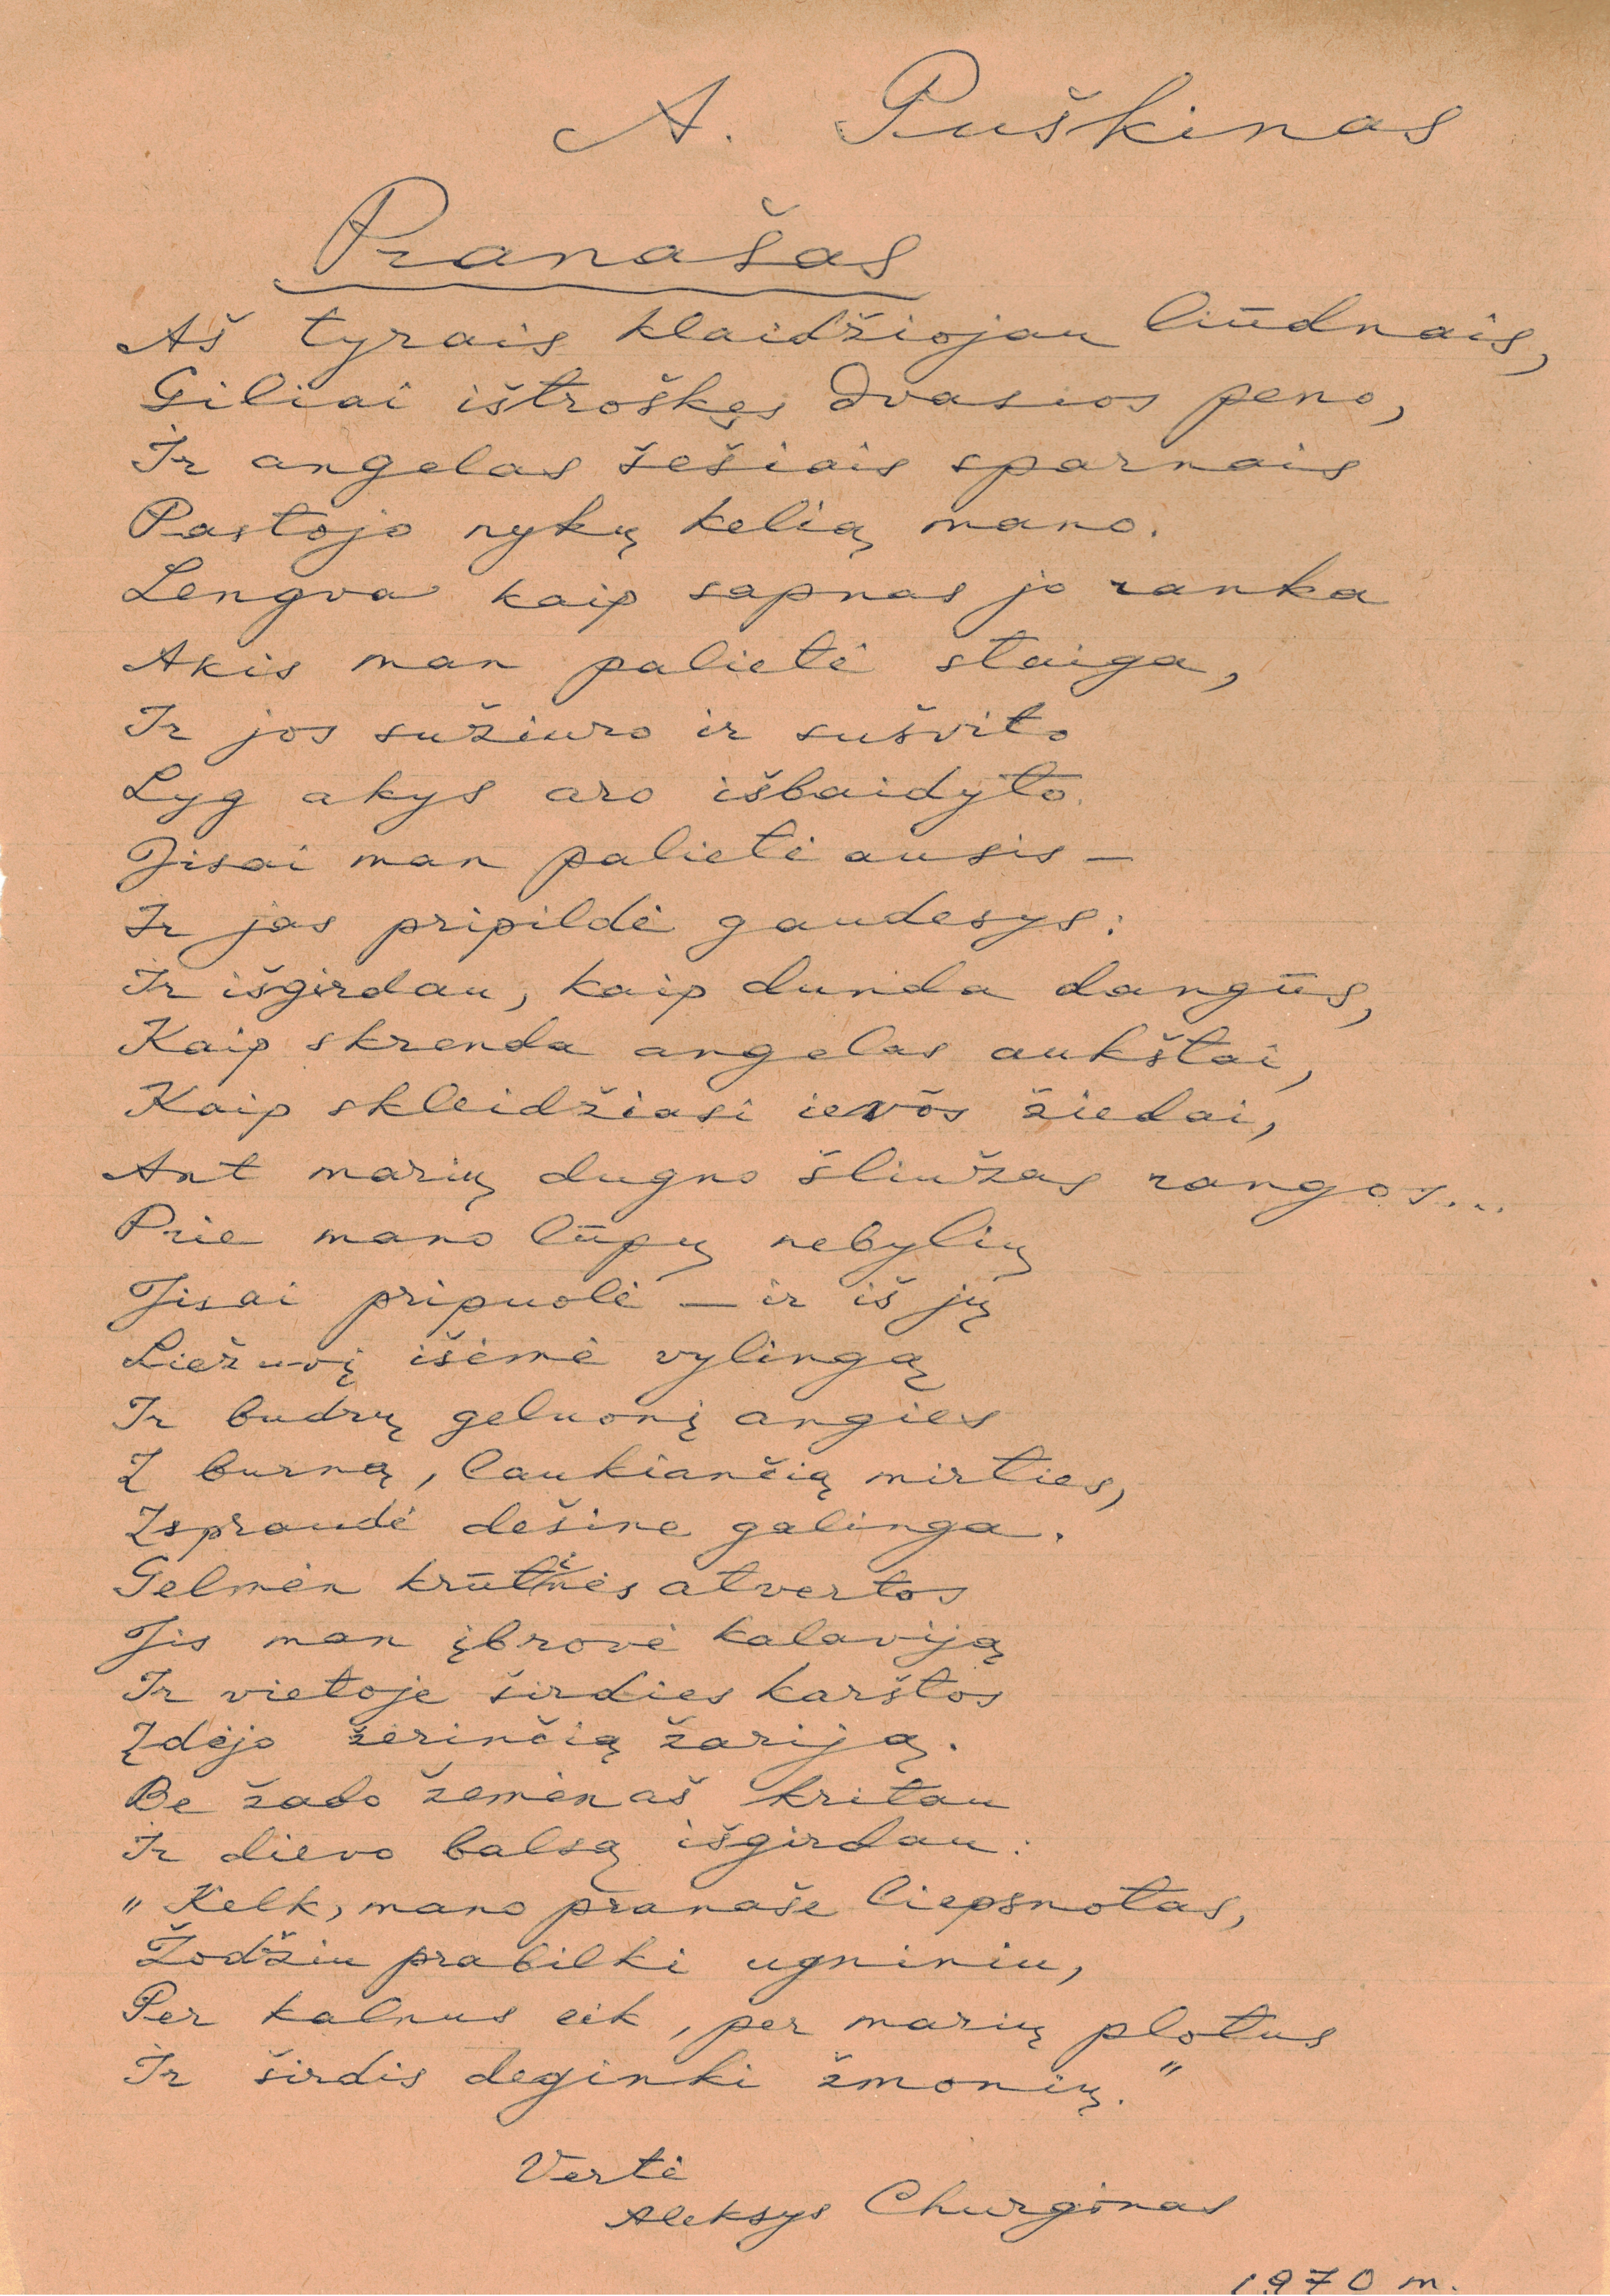 A. Puškinas
Pranašas
Aš tyrais klaidžiojau liūdnais,
Giliai ištroškęs dvasios peno,
Ir angelas šešiais sparnais
Pastojo nykų kelią mano.
Lengva kaip sapnas jo ranka
Akis man palietė staiga,
Ir jos sužiuro ir sušvito
Lyg akys aro išbaidyto.
Jisai man palietė ausis —
Ir jas pripildė gaudesys:
Ir išgirdau, kaip dunda dangūs,
Kaip skrenda angelas aukštai,
Kaip skleidžiasi ievos žiedai,
Ant marių dugno šliužas rangos...
Prie mano lūpų nebylių
Jisai pripuolė — ir iš jų
Liežuvį išėmė vylingą
Ir budrų geluonį angies
Į burną, laukiančią mirties,
Įspraudė dešine galinga.
Gelmėn krūtinės atvertos
Jis man įbrovė kalaviją
Ir vietoje širdies karštos
Įdėjo žėrinčią žariją.
Be žado žemėn aš kritau
Ir dievo balsą išgirdau:
„Kelk, mano pranaše liepsnotas,
Žodžiu prabilki ugniniu,
Per kalnus eik, per marių plotus
Ir širdis deginki žmonių."
Vertė
Aleksys Churginas
1970 m.